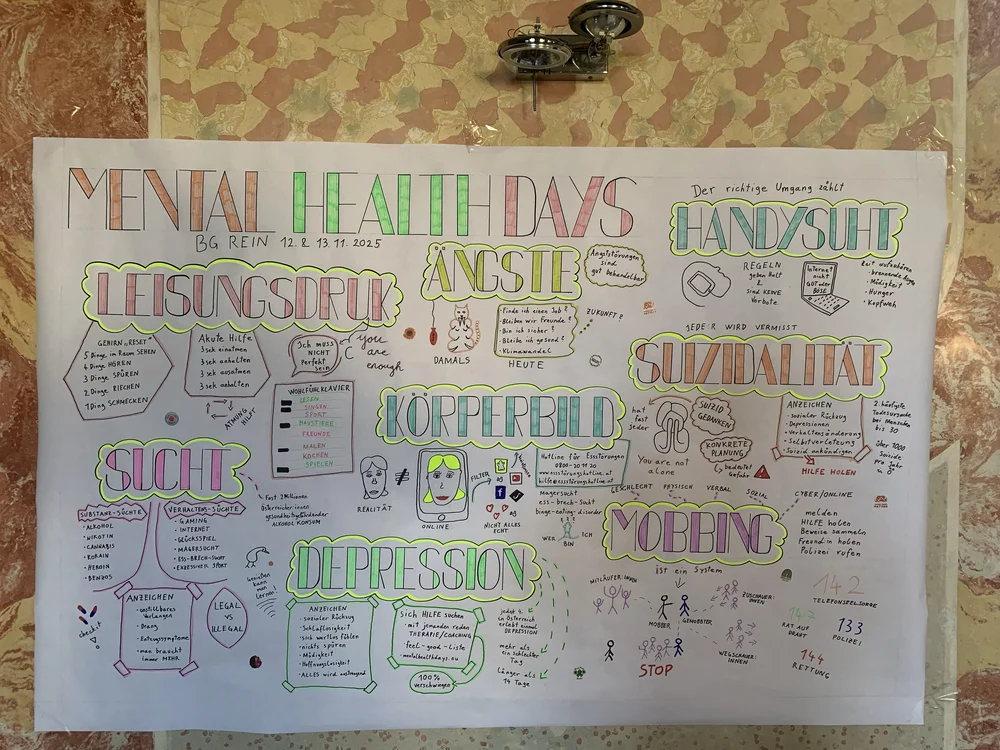 MENTAL HEALTH DAYS
BG REIN 12. & 13. 11. 2025
LEISUNGSDRUK
GEHIRN RESET
5 Dinge im Raum SEHEN
4 Dinge HÖREN
3 Dinge SPÜREN
2 Dinge RIECHEN
1 Ding SCHMECKEN
Akute Hilfe
3 sek einatmen
3 sek anhalten
3 sek ausatmen
3 sek anhalten
ATMUNG
HILFT
Ich muss
NICHT
Perfekt
sein
you
are
enough
WOHLFÜHLKLAVIER
LESEN
SINGEN
SPORT
HAUSTIERE
FREUNDE
MALEN
KOCHEN
SPIELEN
ÄNGSTE
Angststörungen
sind
gut behandelbar
DAMALS
Finde ich einen Job?
Bleiben wir Freunde?
Bin ich sicher?
Bleibe ich gesund?
Klimawandel
HEUTE
ZUKUNFT?
Der richtige Umgang zählt
HANDYSUHT
REGELN
geben Halt
&
sind KEINE
Verbote
Internet
nicht
GUT oder
BÖSE
Müdigkeit
Hunger
Kopfweh
JEDE:R WIRD VERMISST
SUIZIDALITÄT
hat
fast
jeder
SUIZID
GEDANKEN
KONKRETE
PLANUNG
bedeutet
Gefahr
You are not
alone
ANZEICHEN
sozialer Rückzug
Depressionen
Verhaltensänderung
Selbstverletzung
Suizid ankündigen
HILFE HOLEN
2. häufigste
Todesursache
bei Menschen
bis 30
über 1000
Suizide
pro Jahr
in Ö
KÖRPERBILD
REALITÄT
≠
ONLINE
FILTER
NICHT ALLES
ECHT
Hotline für Essstörungen
0800 - 20 11 20
www.essstörungshotline.at
hilfe@essstörungshotline.at
Magersucht
ess-brech-Sucht
binge-eating-disorder
WER
BIN
ICH
SUCHT
SUBSTANZ-SÜCHTE
ALKOHOL
NIKOTIN
CANNABIS
KOKAIN
HEROIN
BENZOS
VERHALTENS-SÜCHTE
GAMING
INTERNET
GLÜCKSSPIEL
MAGERSUCHT
ESS-BRECH-SUCHT
EXZESSIVER SPORT
Fast 2 Millionen
Österreicher:innen
gesundheitsgefährdender
ALKOHOL KONSUM
Genießen
kann
man
lernen!
ANZEICHEN
unstillbares
Verlangen
Drang
Entzugssymptome
man braucht
immer MEHR
LEGAL
VS
ILLEGAL
checkit
DEPRESSION
ANZEICHEN
sozialer Rückzug
Schlaflosigkeit
sich wertlos fühlen
nichts spüren
Müdigkeit
Hoffnungslosigkeit
ALLES wird anstrengend
sich HILFE suchen
mit jemanden reden
THERAPIE/COACHING
feel-good-Liste
mentalhealthdays.eu
100%
verschwiegen
in Österreich
erlebt einmal
DEPRESSION
mehr als
ein schlechter
Tag
Länger als
14 Tage
GESCHLECHT PHYSISCH VERBAL SOZIAL CYBER/ONLINE
MOBBING
ist ein System
melden
HILFE holen
Beweise sammeln
Freund:in holen
Polizei rufen
MITLÄUFER:INNEN
MOBBER
GEMOBBTER
ZUSCHAUER:
INNEN
WEGSCHAUER:
INNEN
STOP
142
TELEFONSEELSORGE
147
RAT AUF
DRAHT
133
POLIZEI
144
RETTUNG